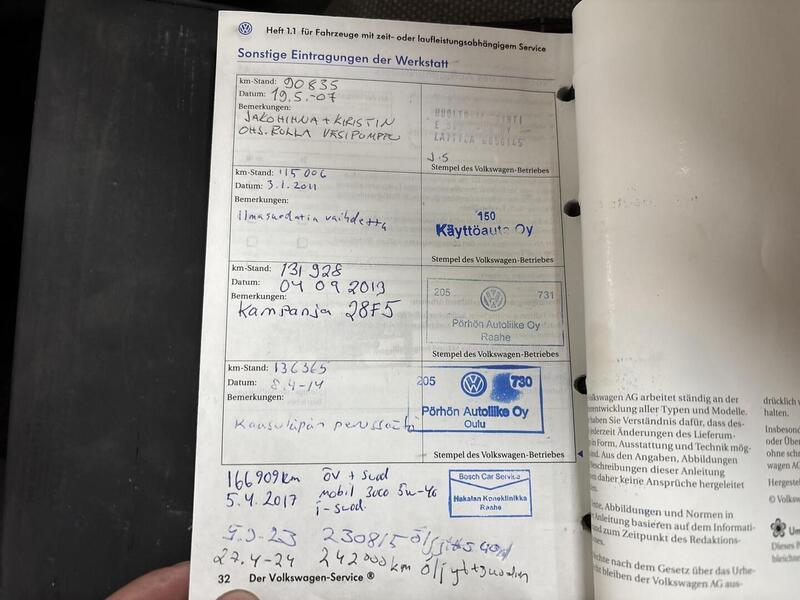 Heft 1.1 für Fahrzeuge mit zeit- oder laufleistungsabhängigem Service
Sonstige Eintragungen der Werkstatt
km-Stand: 90835
Datum: 19.5.-07
Bemerkungen:
JAKOHIHNA + KIRISTIN
OHJ. RULLA VESIPUMPPU
J.S
Stempel des Volkswagen-Betriebes
km-Stand: 115006
Datum: 3.1.2011
Bemerkungen:
ilmasuodatin vaihdettu
150
Käyttöauto Oy
Stempel des Volkswagen-Betriebes
km-Stand: 131 928
Datum: 04 09 2013
Bemerkungen:
Kampanja 28F5
205 731
Pörhön Autoliike Oy
Raahe
Stempel des Volkswagen-Betriebes
km-Stand: 136365
Datum: 8.4-14
Bemerkungen:
205 730
Pörhön Autoliike Oy
Oulu
Stempel des Volkswagen-Betriebes
166909km ÖV + Suod
5.4.2017 mobil 3000 5w-40
i-suod.
Bosch Car Service
Hakalan Koneklinikka
Raahe
230815
27.4-24 242000km
32 Der Volkswagen-Service ®
Volkswagen AG arbeitet ständig an der
entwicklung aller Typen und Modelle.
haben Sie Verständnis dafür, dass des-
jederzeit Änderungen des Lieferum-
in Form, Ausstattung und Technik mög-
sind. Aus den Angaben, Abbildungen
Beschreibungen dieser Anleitung
en daher keine Ansprüche hergeleitet
Texte, Abbildungen und Normen in
Anleitung basieren auf dem Informati-
und zum Zeitpunkt des Redaktions-
Rechte nach dem Gesetz über das Urhe-
bleiben der Volkswagen AG aus-
drücklich
halten.
Insbesond
oder Über
ohne sch
wagen AG
Hergestel
© Volksw
Um
Dieses P
bleichne